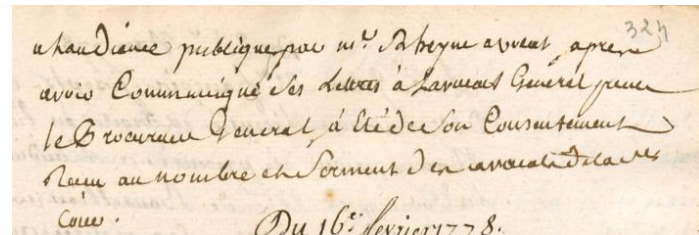 324
a haudiance publique par mr. avocat, apres
avoir Communiqué ses Lettres à Lavocat Général pour
le Procureur General, à été de son Consentement
Recu au nombre et Serment des avocats de la
Cour.
Du 16e. fevrier 1778.